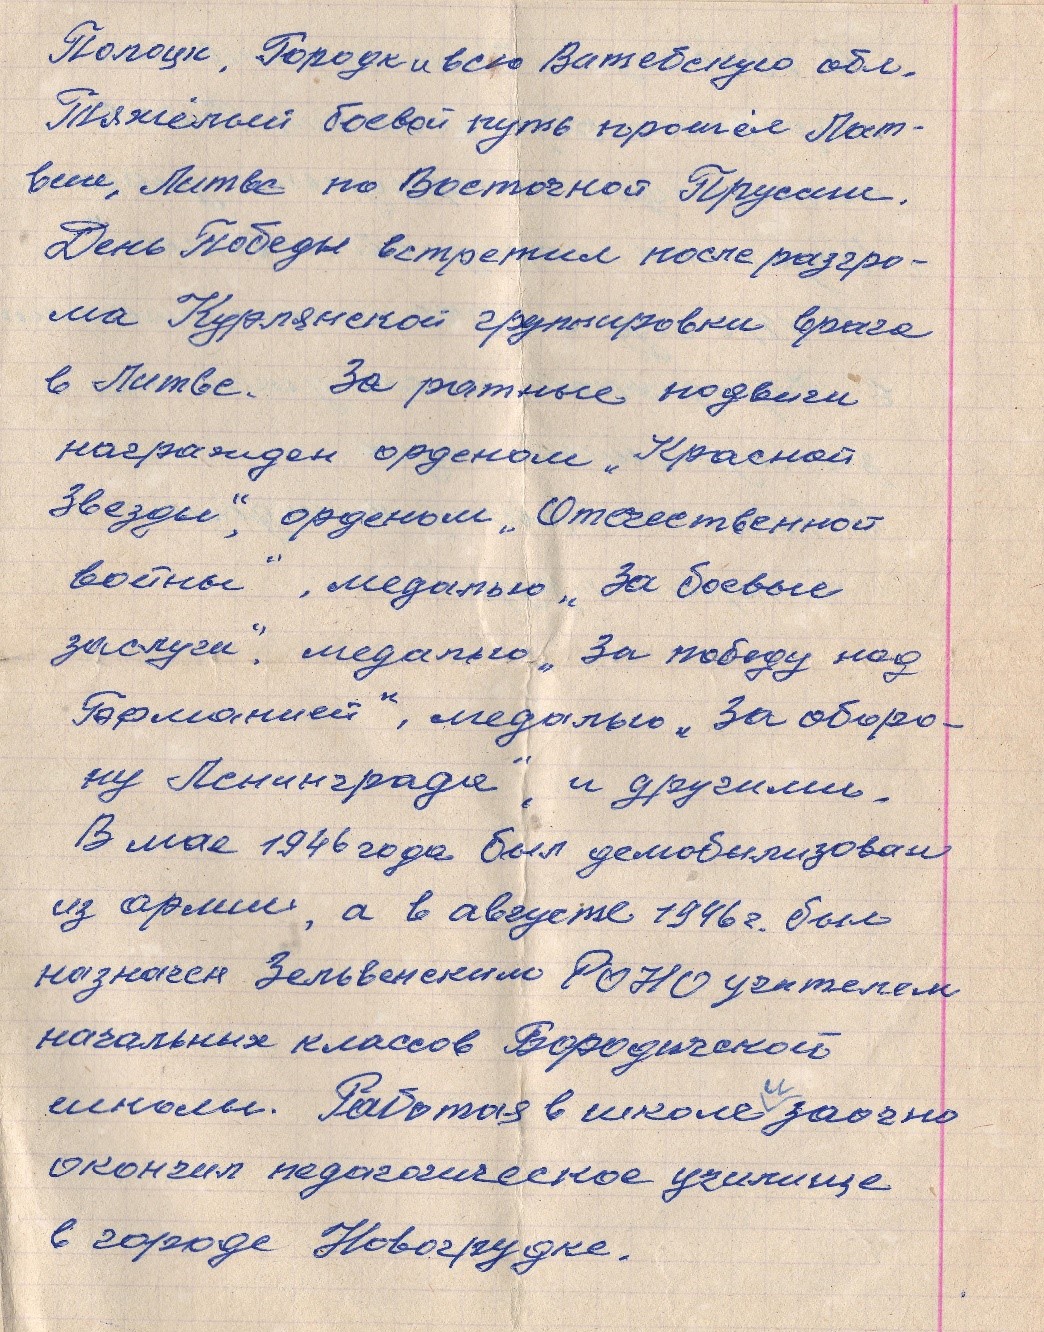 Полоцк, Городк и всю Витебскую обл.
Тяжёлый боевой путь прошёл Лат-
вии, Литве по Восточной Пруссии.
День Победы встретил после разгро-
ма Курлянской группировки врага
в Литве. За ратные подвиги
награжден орденом „Красной
Звезды“, орденом „Отечественной
войны“, медалью „За боевые
заслуги“, медалью „За победу над
Германией“, медалью „За оборо-
ну Ленинграда“, и другими.
В мае 1946 года был демобилизован
из армии, а в августе 1946 г. был
назначен Зельвенским РОНО учителем
начальных классов Бородичской
школы. Работая в школе и заочно
окончил педагогическое училище
в городе Новогрудке.